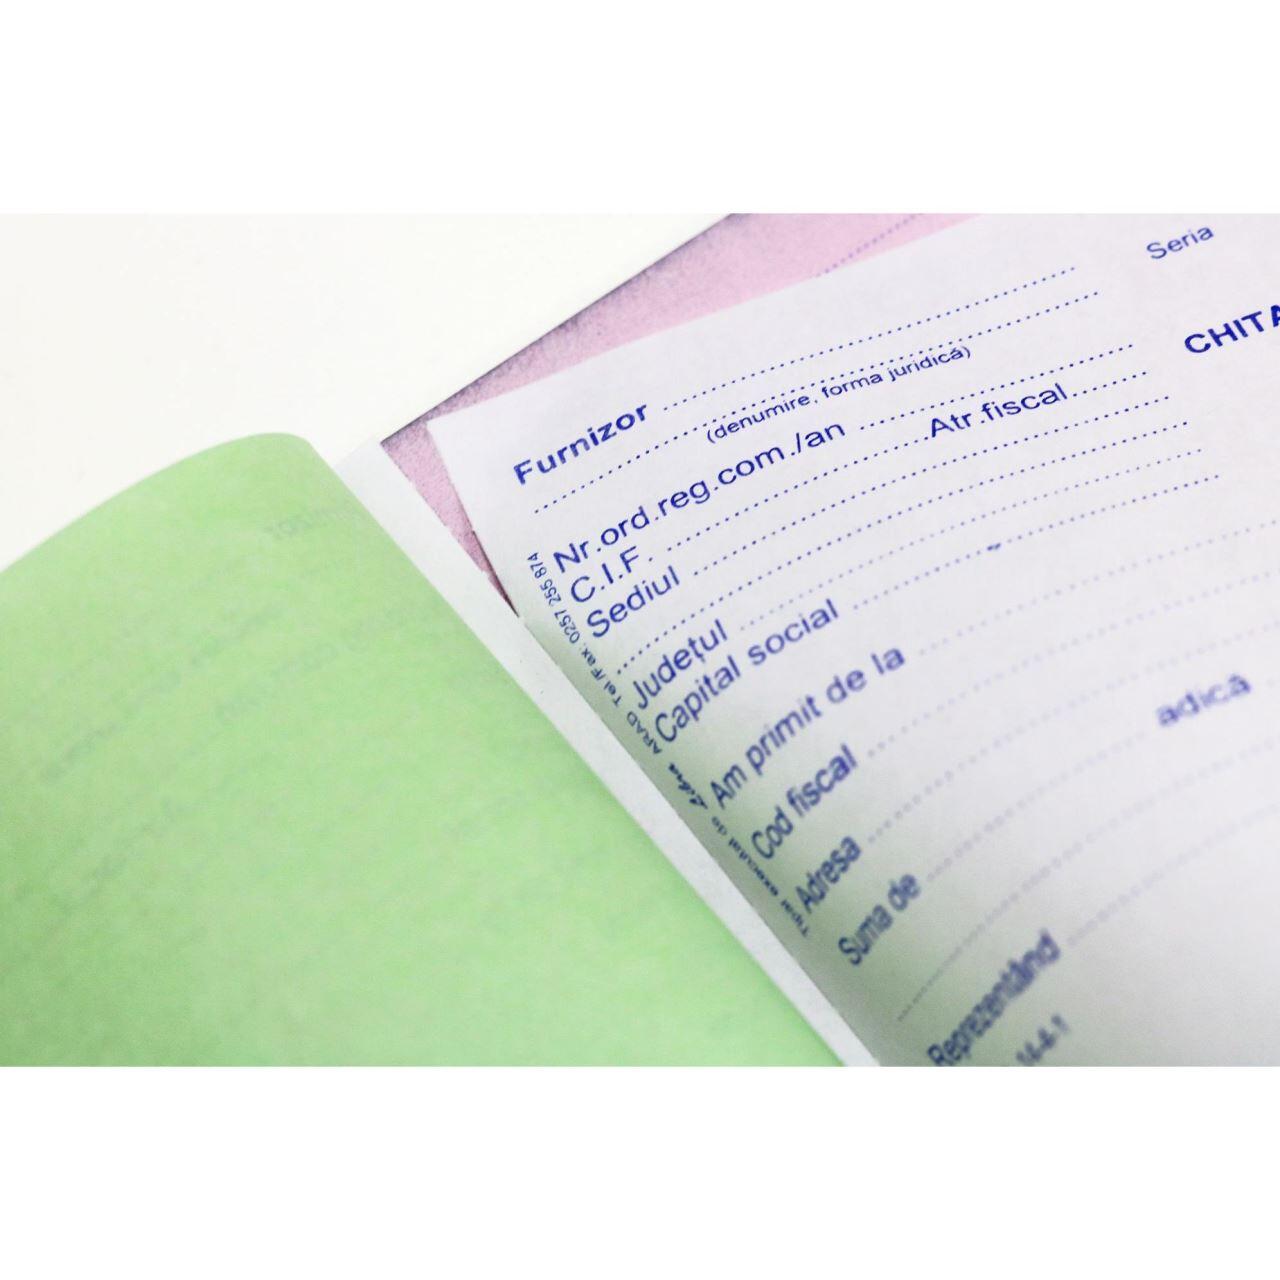 Seria
CHITA
Furnizor
(denumire, forma juridică)
Nr.ord.reg.com./an Atr.fiscal
C.I.F.
Sediul
Județul
Capital social
Am primit de la
Cod fiscal
Adresa
Suma de adică
Reprezentând
14-4-1
Tipar executat de Libra ARAD Tel/Fax: 0257 255 874